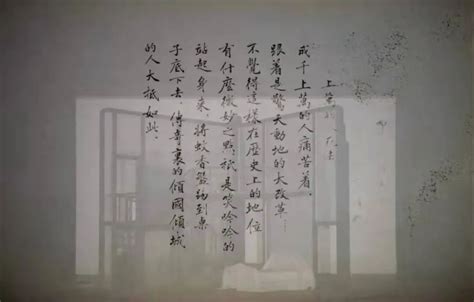 上
成千上萬的人痛苦着,
跟着是驚天動地的大改革…
不覺得這樣在歷史上的地位
有什麼微妙之點,祗是笑吟吟的
站起身來,將蚊香盤踢到桌
子底下去,傳奇裏的傾國傾城
的人大祗如此.